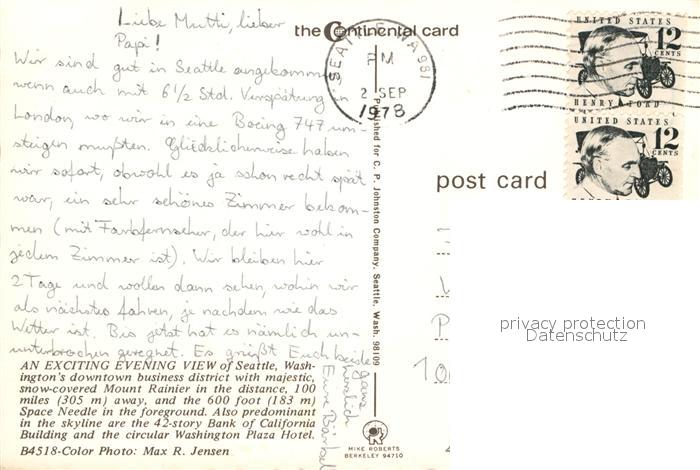 Liebe Mutti, lieber
Papi!
Wir sind gut in Seattle angekommen
wenn auch mit 6 1/2 Std. Verspätung in
London, wo wir in eine Boeing 747 um-
steigen mußten. Glücklicherweise haben
wir sofort, obwohl es ja schon recht spät
war, ein sehr schönes Zimmer bekom-
men (mit Farbfernseher, der hier wohl in
jedem Zimmer ist). Wir bleiben hier
2 Tage und wollen dann sehen, wohin wir
als nächstes fahren, je nachdem wie das
Wetter ist. Bis jetzt hat es nämlich un-
unterbrochen geregnet. Es grüßt Euch beide
ganz
herzlich
Eure Bärbel
AN EXCITING EVENING VIEW of Seattle, Wash-
ington's downtown business district with majestic,
snow-covered Mount Rainier in the distance, 100
miles (305 m) away, and the 600 foot (183 m)
Space Needle in the foreground. Also predominant
in the skyline are the 42-story Bank of California
Building and the circular Washington Plaza Hotel.
B4518-Color Photo: Max R. Jensen
the Continental card
SEATTLE, WA 981
PM
2 SEP
1978
Published for C. P. Johnston Company, Seattle, Wash. 98109
MIKE ROBERTS
BERKELEY 94710
UNITED STATES
12
CENTS
HENRY FORD
UNITED STATES
12
CENTS
post card
privacy protection
Datenschutz